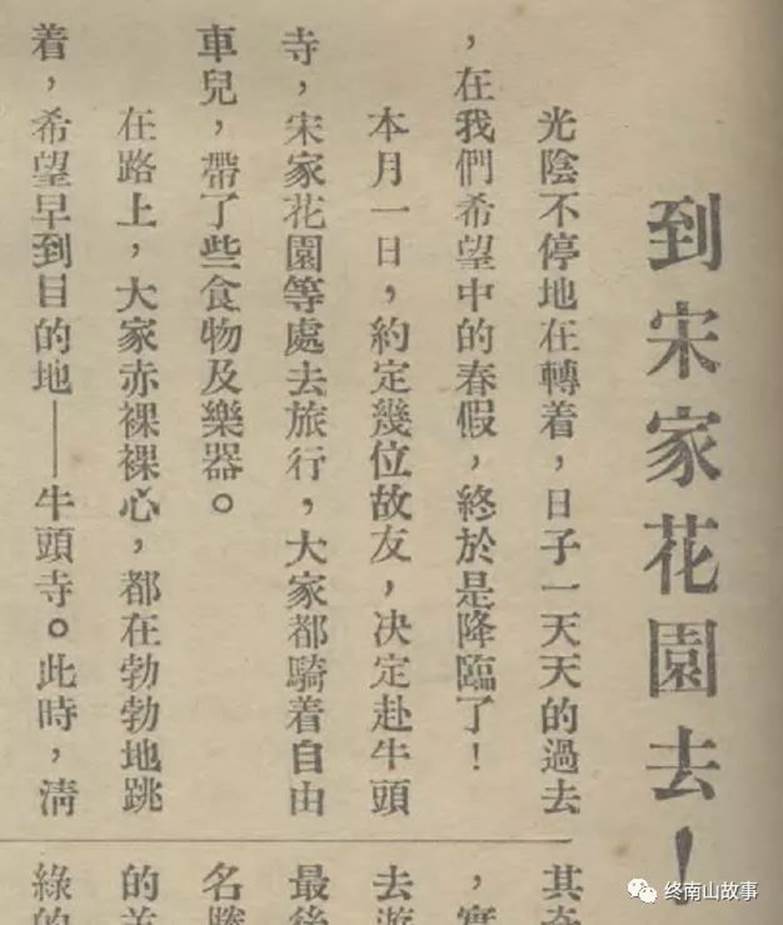 到宋家花園去！
光陰不停地在轉着，日子一天天的過去
，在我們希望中的春假，終於是降臨了！
本月一日，約定幾位故友，決定赴牛頭
寺，宋家花園等處去旅行，大家都騎着自由
車兒，帶了些食物及樂器。
在路上，大家赤裸裸心，都在勃勃地跳
着，希望早到目的地——牛頭寺。此時，清
其
，
去遊
最後
名勝
的
綠的
终南山故事